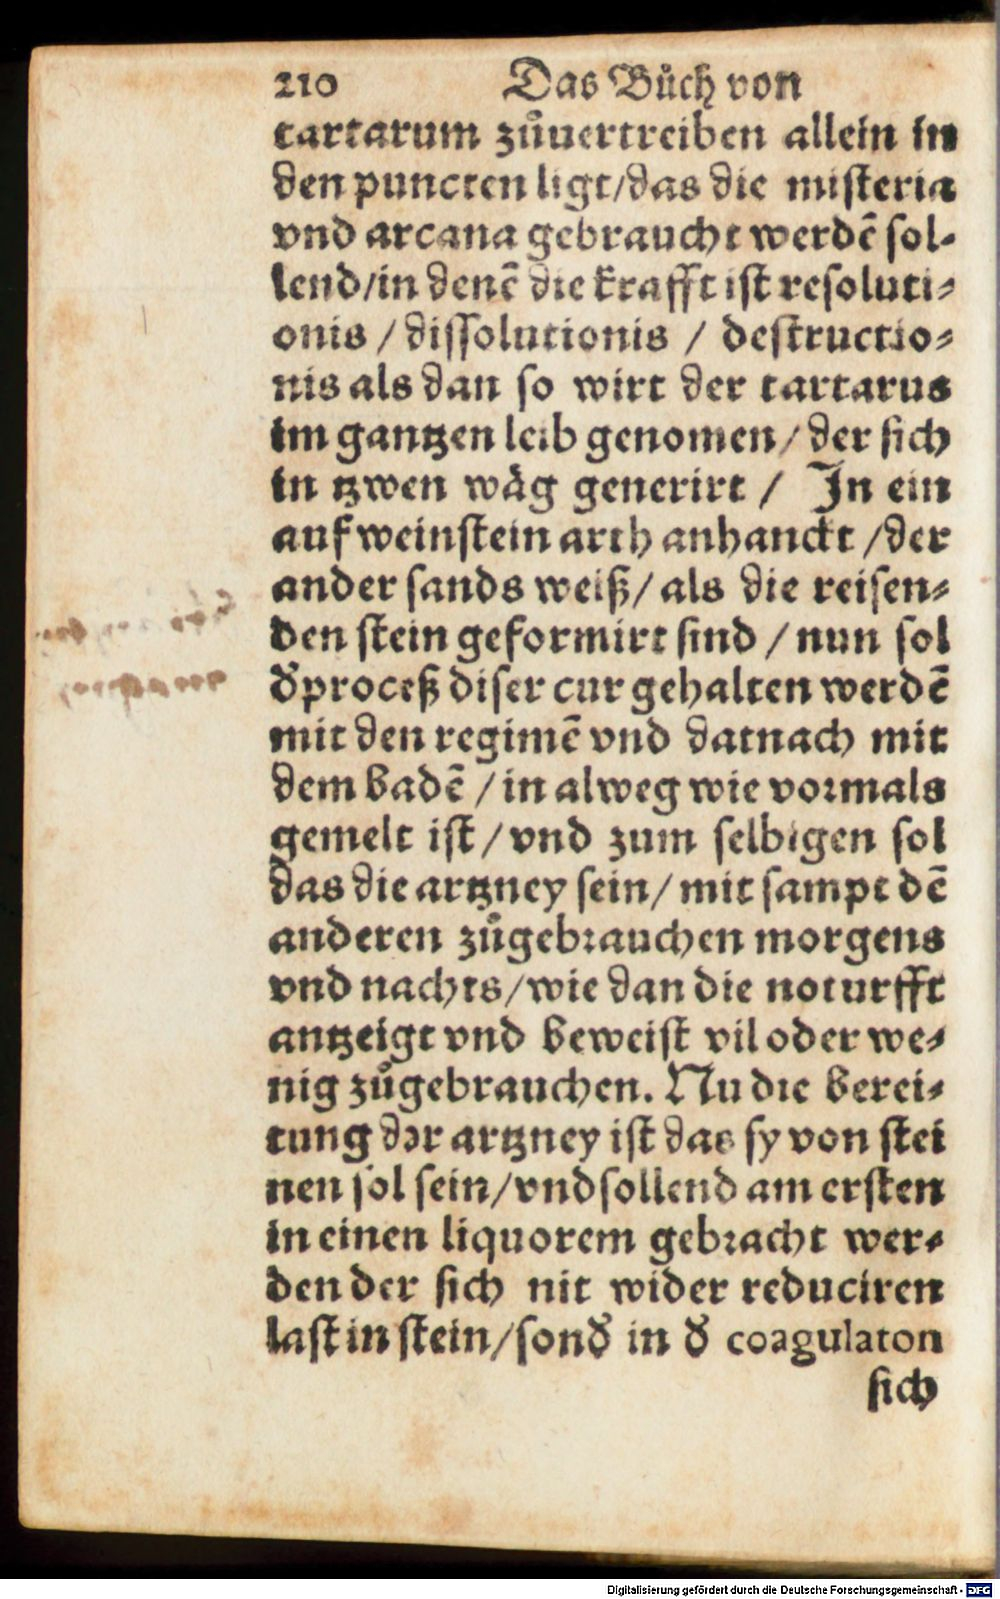 210 Das Bůch von
tartarum zůuertreiben allein in
den puncten ligt/das die misteria
vnd arcana gebraucht werdẽ sol-
lend/in denẽ die krafft ist resoluti-
onis / dissolutionis / destructio-
nis als dan so wirt der tartarus
im gantzen leib genomen/der sich
in tzwen wåg generirt / In ein
auf weinstein arth anhanckt /der
ander sands weiß/ als die reisen-
den stein geformirt sind / nun sol
d̕ proceß diser cur gehalten werdẽ
mit den regimẽ vnd datnach mit
dem badẽ /in alweg wie vormals
gemelt ist/vnd zum selbigen sol
das die artzney sein/ mit sampt dẽ
anderen zůgebrauchen morgens
vnd nachts/wie dan die noturfft
antzeigt vnd beweist vil oder we-
nig zůgebrauchen. Nu die berei-
tung der artzney ist das sy von stei
nen sol sein/vnd sollend am ersten
in einen liquorem gebracht wer-
den der sich nit wider reduciren
last in stein/sond̕ in d̕ coagulaton
sich
Digitalisierung gefördert durch die Deutsche Forschungsgemeinschaft - DFG